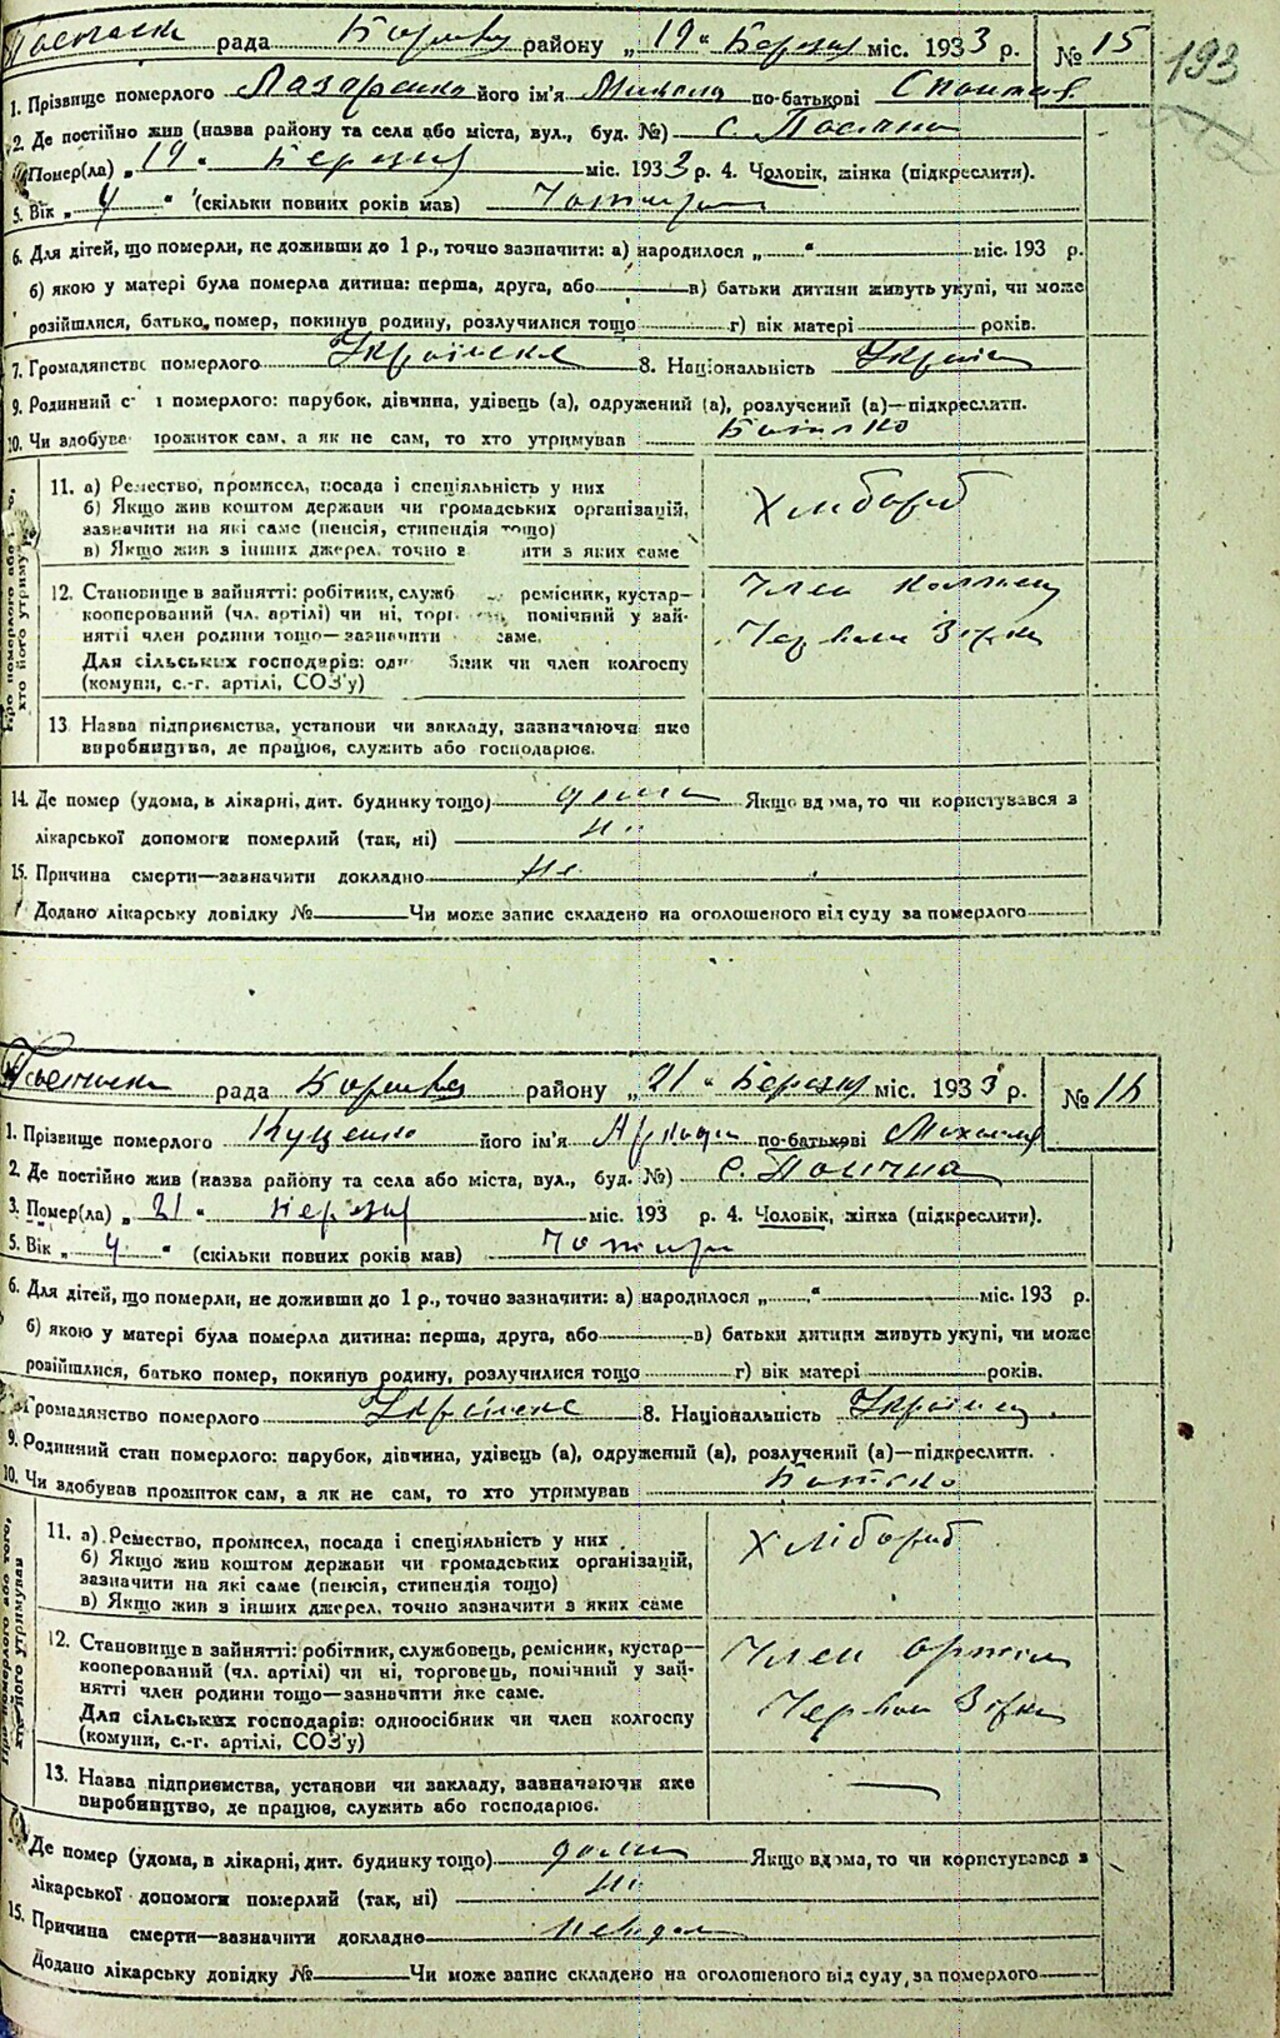 рада району „ 19 “ Березня міс. 1933 р. № 15
193
1. Прізвище померлого Лазаренко його ім'я Микола по-батькові
2. Де постійно жив (назва району та села або міста, вул., буд. №) с.
Помер(ла) „ 19 “ Березня міс. 1933 р. 4. Чоловік, жінка (підкреслити).
5. Вік „ 4 “ (скільки повних років мав) Чотири
6. Для дітей, що померли, не доживши до 1 р., точно зазначити: а) народилося „ “ міс. 193 р.
б) якою у матері була померла дитина: перша, друга, або в) батьки дитини живуть укупі, чи може
розійшлися, батько помер, покинув родину, розлучилися тощо г) вік матері років.
7. Громадянство померлого Українське 8. Національність
9. Родинний с і померлого: парубок, дівчина, удівець (а), одружений (а), розлучений (а)—підкреслити.
10. Чи здобува прожиток сам, а як не сам, то хто утримував Батько
хто його утриму
11. а) Ремество, промисел, посада і спеціяльність у них Хлібороб
б) Якщо жив коштом держави чи громадських організацій,
зазначити на які саме (пенсія, стипендія тощо)
в) Якщо жив з інших джерел, точно з ити з яких саме
12. Становище в зайнятті: робітник, служб ремісник, кустар— Член
кооперований (чл. артілі) чи ні, торг помічний у зай-
нятті член родини тощо—зазначити саме. Зірка
Для сільських господарів: одн бник чи член колгоспу
(комуни, с.-г. артілі, СОЗ'у)
13 Назва підприємства, установи чи закладу, зазначаючи яке
виробництва, де працює, служить або господарює.
14. Де помер (удома, в лікарні, дит. будинку тощо) дома Якщо вдома, то чи користувався з
лікарської допомоги померлий (так, ні) ні
15. Причина смерти—зазначити докладно
Додано лікарську довідку № Чи може запис складено на оголошеного від суду за померлого
рада району „ 21 “ Березня міс. 1933 р. № 16
1. Прізвище померлого Куценко його ім'я по-батькові
2. Де постійно жив (назва району та села або міста, вул., буд. №) с.
3. Помер(ла) „ 21 “ Березня міс. 193 р. 4. Чоловік, жінка (підкреслити).
5. Вік „ 4 “ (скільки повних років мав) Чотири
6. Для дітей, що померли, не доживши до 1 р., точно зазначити: а) народилося „ “ міс. 193 р.
б) якою у матері була померла дитина: перша, друга, або в) батьки дитини живуть укупі, чи може
розійшлися, батько помер, покинув родину, розлучилися тощо г) вік матері років.
Громадянство померлого Українське 8. Національність Українец
9. Родинний стан померлого: парубок, дівчина, удівець (а), одружений (а), розлучений (а)—підкреслити.
10. Чи здобував прожиток сам, а як не сам, то хто утримував Батько
Про померлого або того, хто його утримував
11. а) Ремество, промисел, посада і спеціяльність у них Хлібороб
б) Якщо жив коштом держави чи громадських організацій,
зазначити на які саме (пенсія, стипендія тощо)
в) Якщо жив з інших джерел, точно зазначити з яких саме
12. Становище в зайнятті: робітник, службовець, ремісник, кустар— Член
кооперований (чл. артілі) чи ні, торговець, помічний у зай-
нятті член родини тощо—зазначити яке саме. Зірка
Для сільських господарів: одноосібник чи член колгоспу
(комуни, с.-г. артілі, СОЗ'у)
13. Назва підприємства, установи чи закладу, зазначаючи яке
виробництво, де працює, служить або господарює.
Де помер (удома, в лікарні, дит. будинку тощо) дома Якщо вдома, то чи користувався з
лікарської допомоги померлий (так, ні) ні
15. Причина смерти—зазначити докладно
Додано лікарську довідку № Чи може запис складено на оголошеного від суду, за померлого